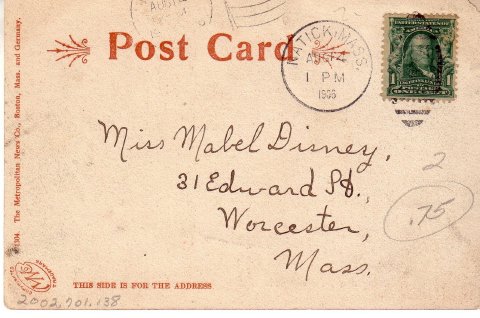 Post Card
NATICK, MASS.
1 PM
UNITED STATES OF
ONE CENT
Miss Mabel Disney,
31 Edward St.,
Worcester,
Mass.
2
.75
The Metropolitan News Co., Boston, Mass. and Germany.
THIS SIDE IS FOR THE ADDRESS
2002.701.138